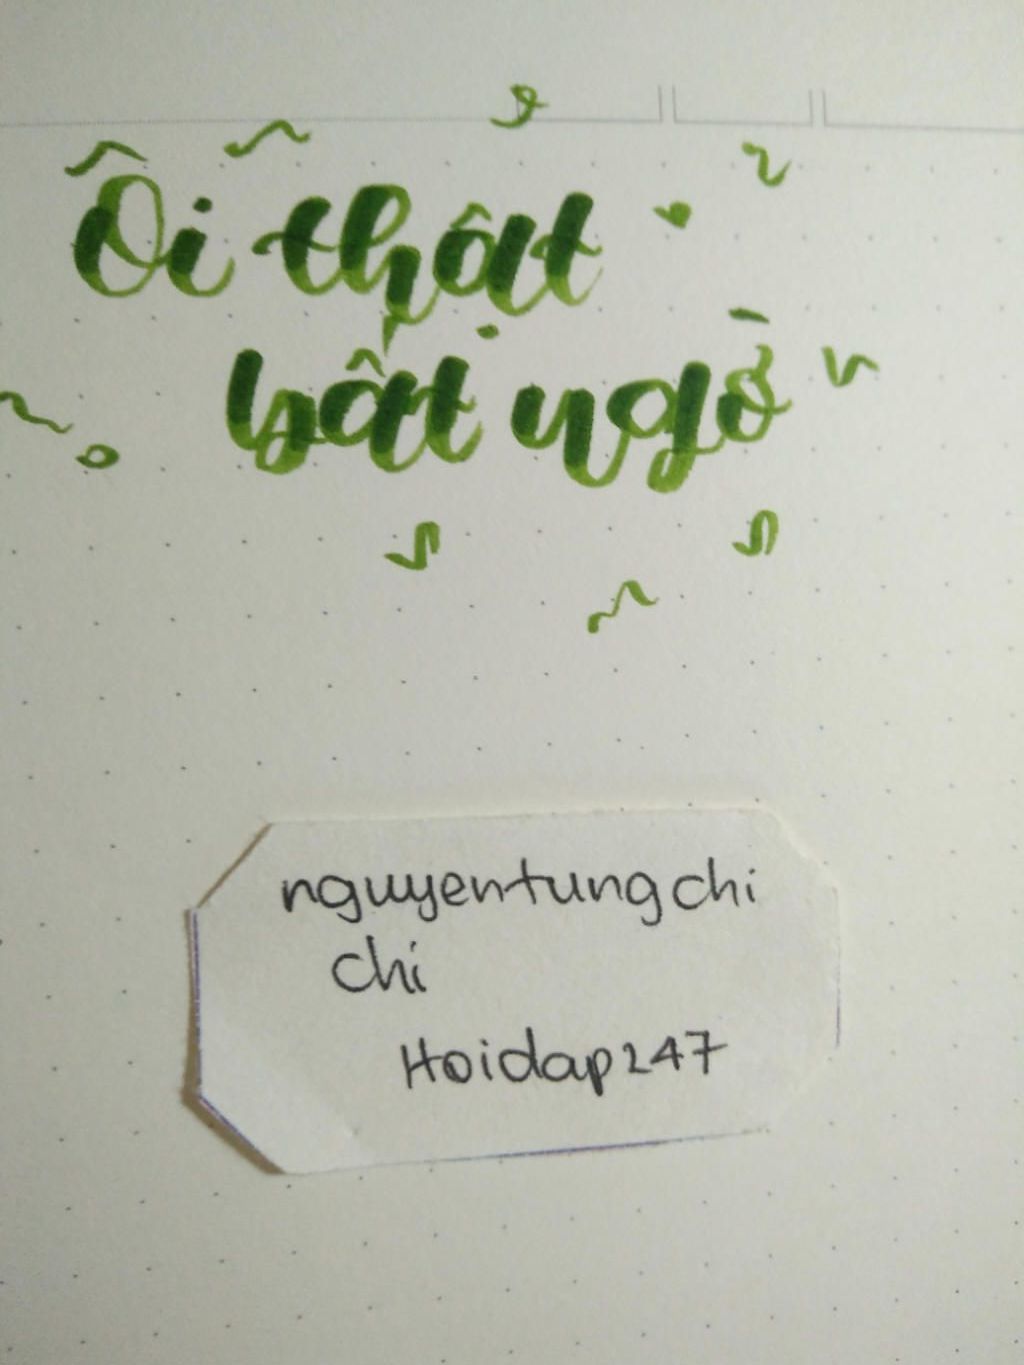 Ôi thật
bất ngờ
nguyentungchi
chi
Hoidap247